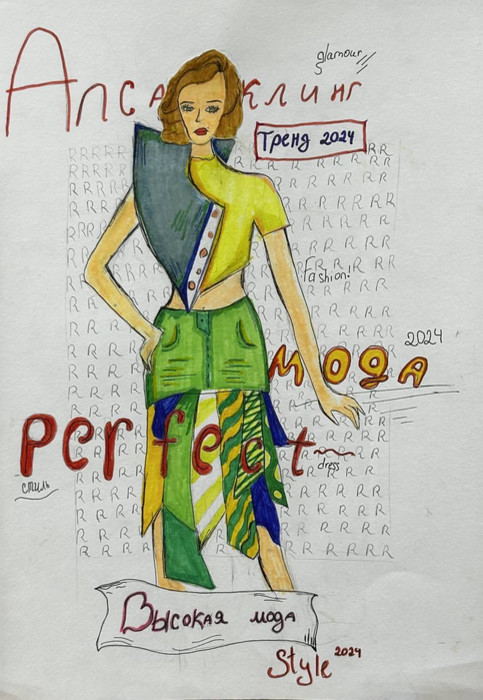 glamour
Апса клинг
Тренд 2024
Fashion!
2024
мода
perfect
dress
стиль
Высокая мода
Style 2024